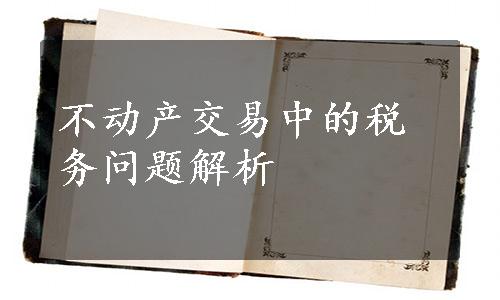 不动产交易中的税
务问题解析